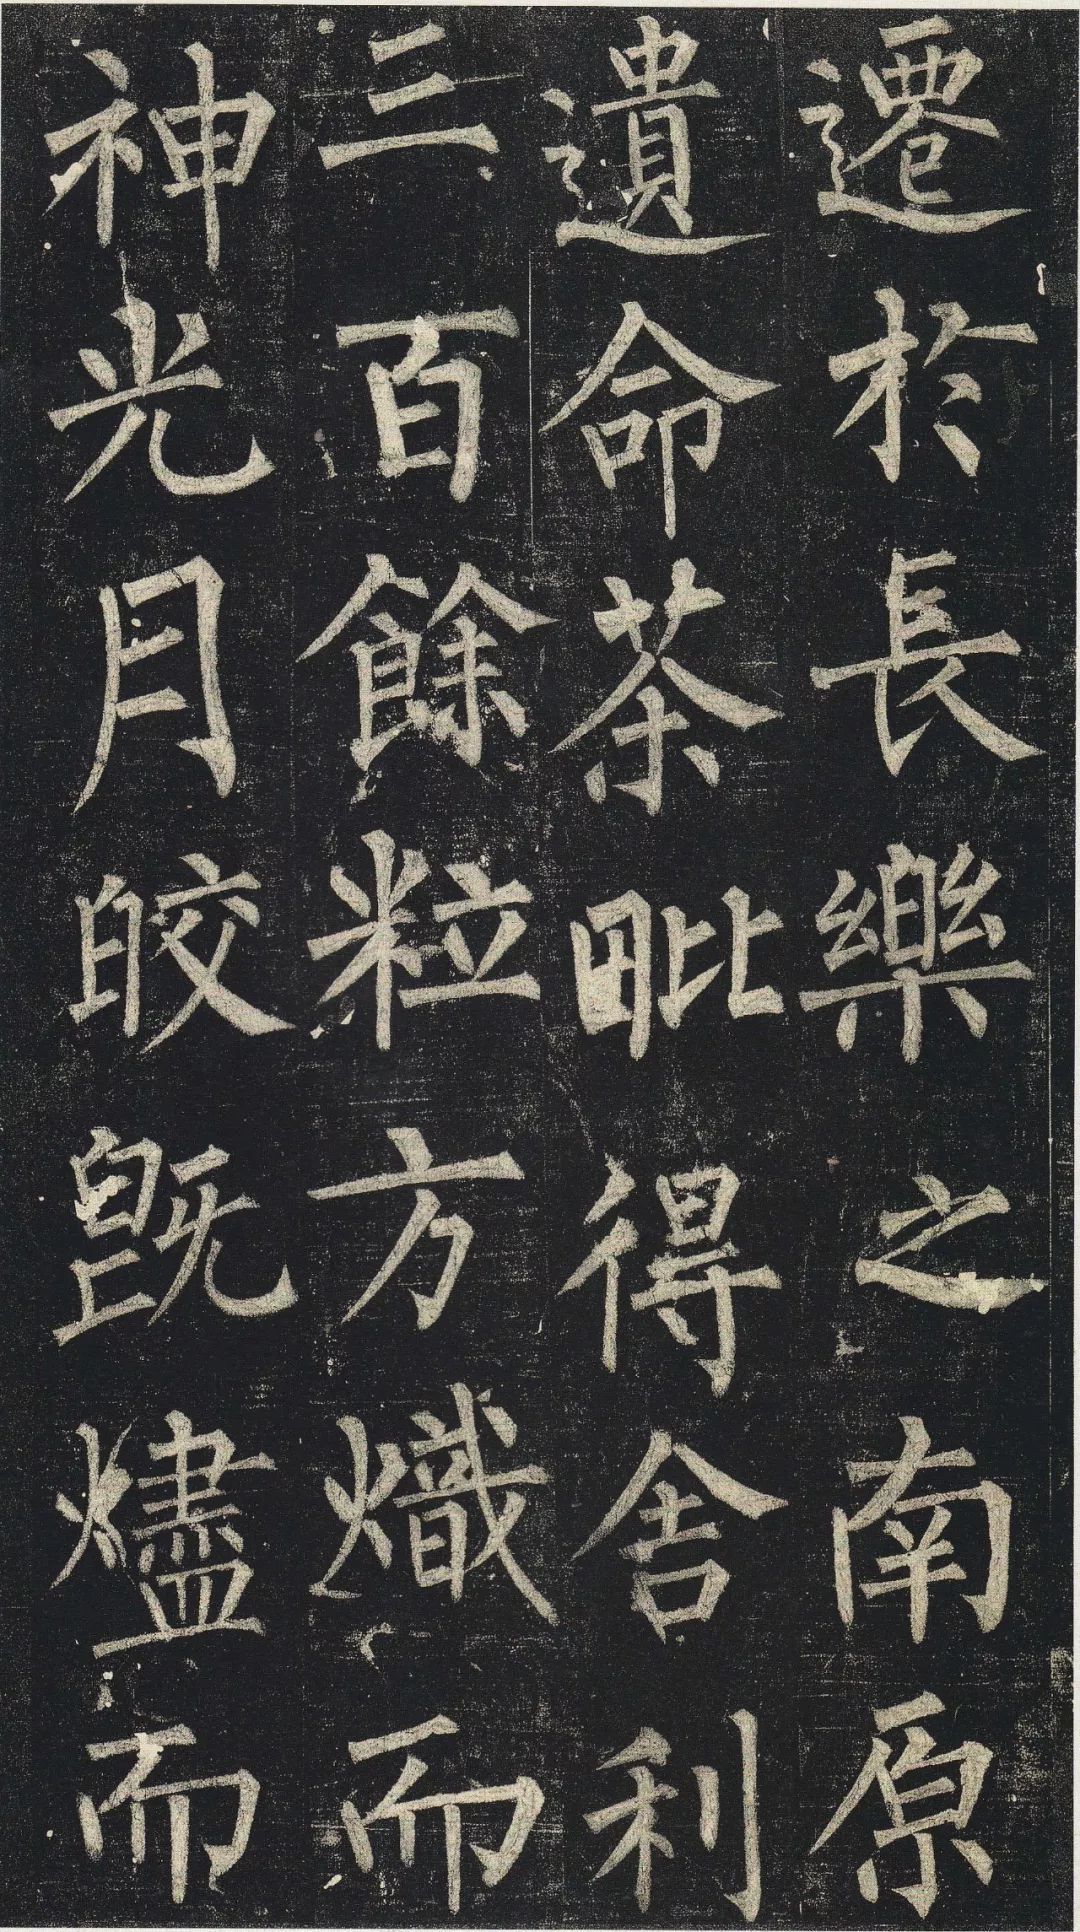 遷於長樂之南原
遺命茶毗得舍利
三百餘粒方熾而
神光月皎既燼而